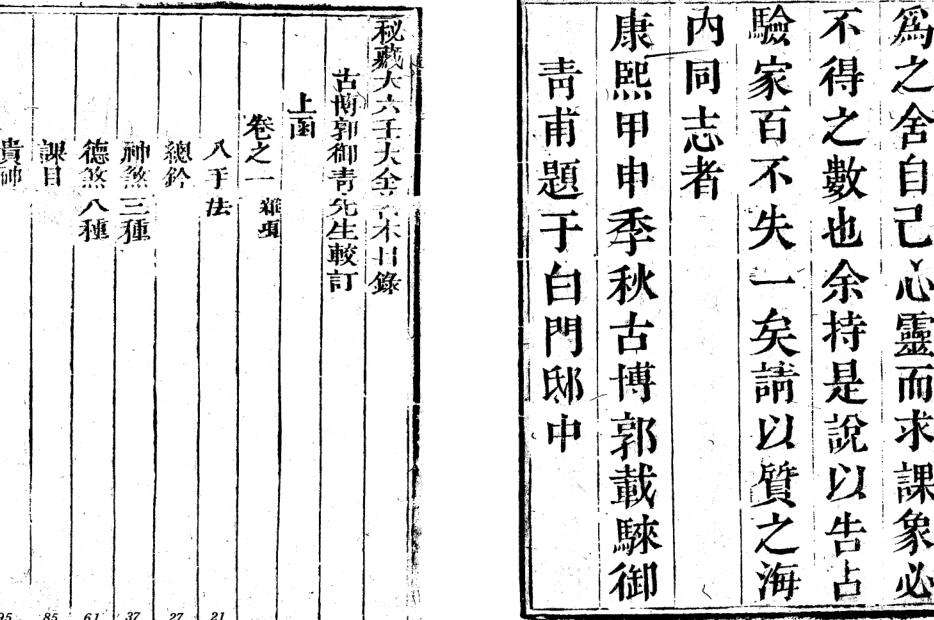 爲之舍自己心靈而求課象必
不得之數也余持是說以告占
驗家百不失一矣請以質之海
內同志者
康熙甲申季秋古博郭載騋御
靑甫題于白門邸中
秘藏大六壬大全善本目錄
古博郭御青先生較訂
上函
卷之一 雜項
八手法
總鈐
神煞三種
德煞八種
課目
貴神
21
27
37
61
85
95